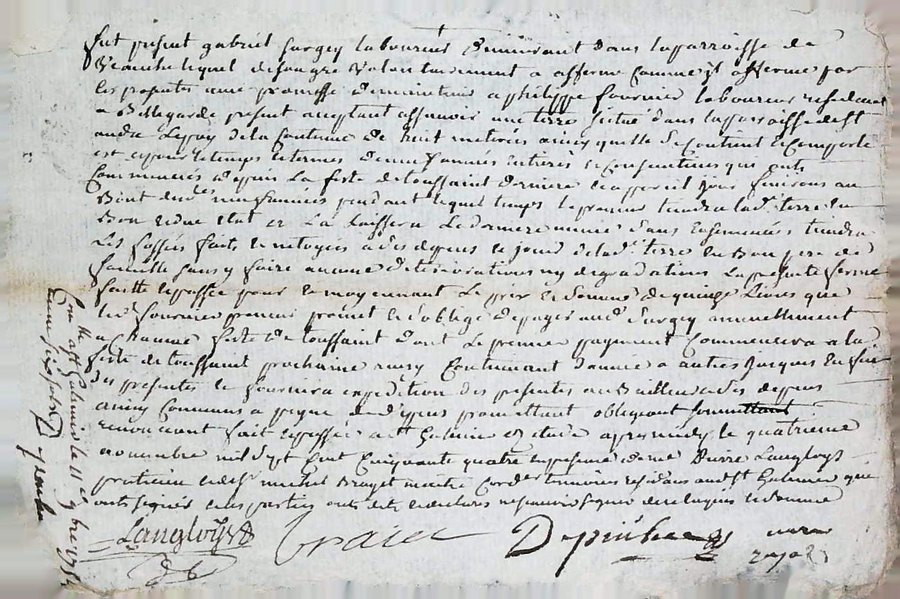 fut présent gabriel Surgey laboureur demeurant dans la parroisse de
lequel de son gré volontairement a affermé comme jl afferme par
les présentes avec promesse de maintenir a philippe fournier laboureur residant
a Bellegarde présent acceptant assavoir une terre située dans la parroisse de st
andré Lepuy de la Contenue de huit meterées ainsy quelle se contient et comporte
est et pour le temps et termes de neuf années entieres et Consecutives qui ont
Commencées depuis la feste de toussaint derniere et a pareil jour finiront au
Bout desd. neuf années pendant lequel temps le preneur tiendra lad. terre en
Bon et due etat et La laissera La derniere année sans tiendra
Les fossés faits et netoyés a ses depens et jouira de lad. terre en Bon pere de
famille sans y faire aucune deteriorations ny degradations La présente ferme
faitte et passée pour et moyennant Le prix et somme de quinze Livres que
led. fournier preneur promet et s'oblige de payer aud. Surgey annuellement
a Chaque feste de toussaint dont Le premier payement Commencera a la
feste de toussaint prochaine ainsy Continuant d'année a autres Jusques en fin
des présentes et fournira expedition des présentes au Bailleur a ses depens
ainsy Convenus a peyne de depens promettant obligeant soumettant
renonceant fait et passé a st Galmier et etude apres midy le quatrieme
novembre mil sept Cent Cinquante quatre en présence de me pierre Langloys
praticien et de sr michel maitre Cordr temoins residans aud st Galmier qui
ont signés et les parties ont dit ne scavoir signer de ce enquis et somme
Langloys
nore
royal
Con lle a st Galmier le 11e 9bre 1754